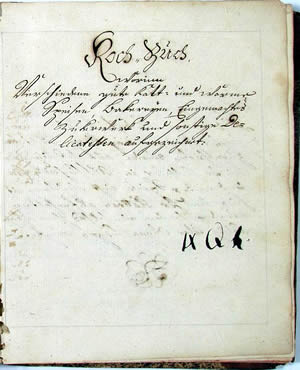 Koch-Buch.
Worinn
Verschiedene gute Kalt- und warme
Speisen Bakereyen Eingemachtes
Zukerwerk und sonstige De-
licatessen aufgezeichnet.